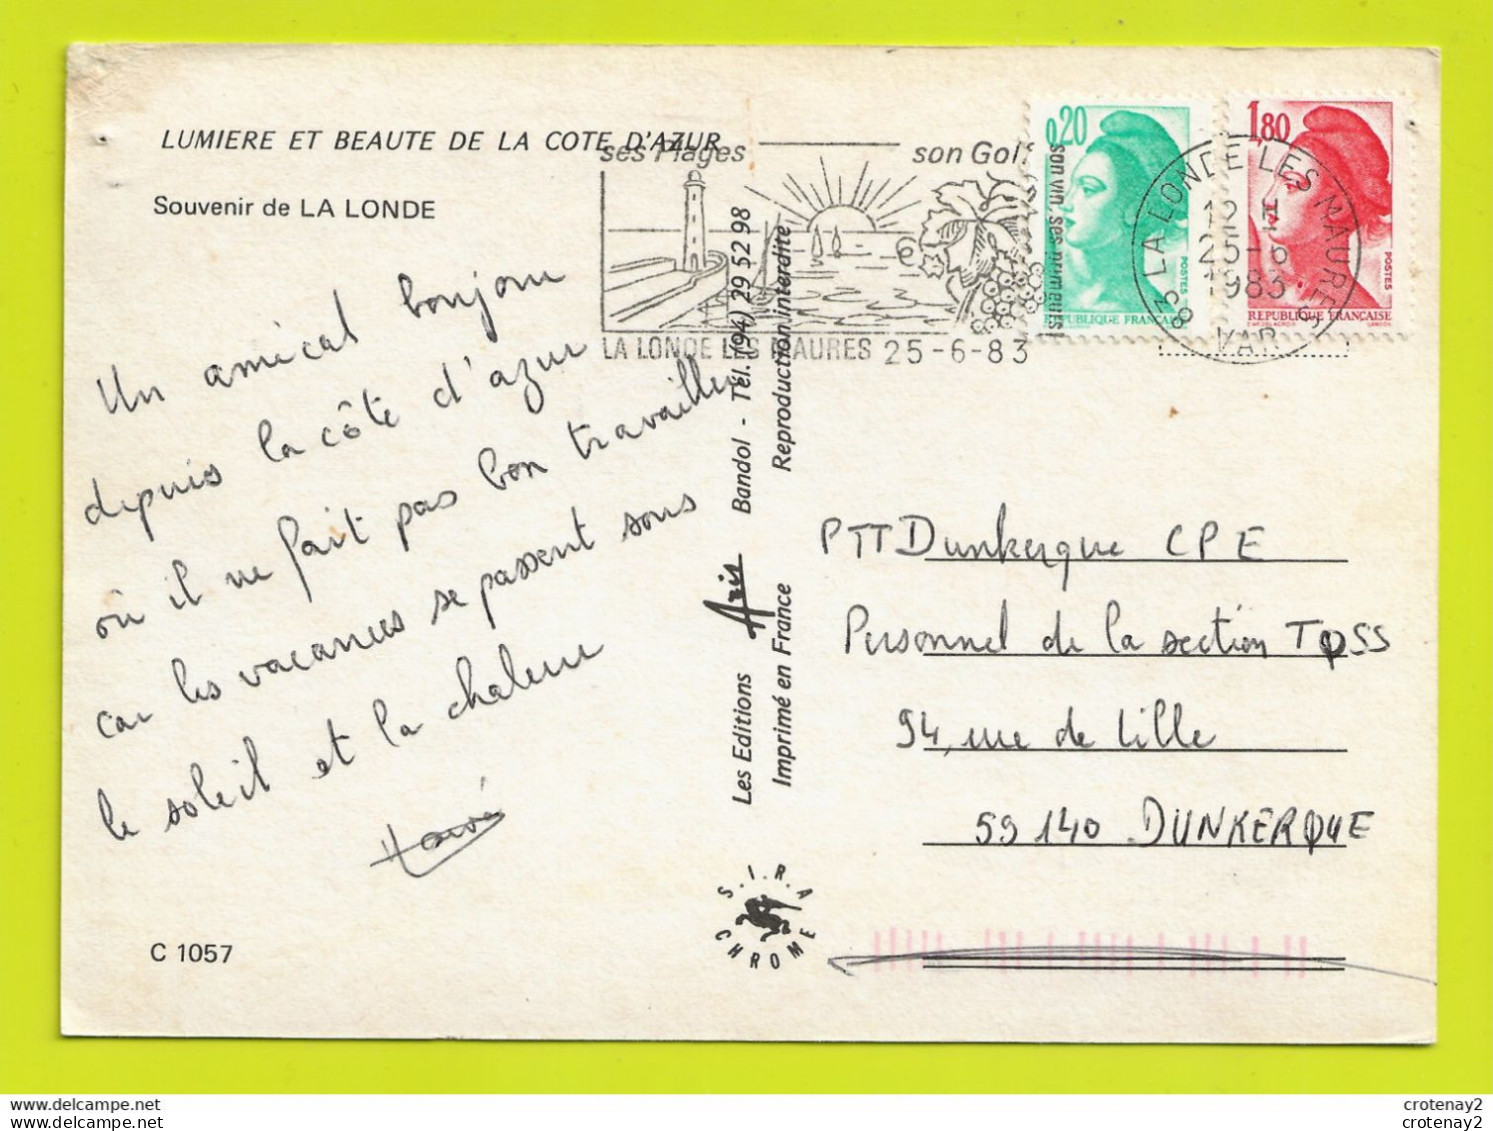 LUMIERE ET BEAUTE DE LA COTE D'AZUR
Souvenir de LA LONDE
ses Plages
son Golf
son vin, ses primeurs
LA LONDE LES MAURES 25-6-83
0,20
POSTES
REPUBLIQUE FRANCAISE
1,80
POSTES
REPUBLIQUE FRANÇAISE
83 LA LONDE LES MAURES
12 H
25-6
1983
VAR
Un amical bonjour
depuis la côte d'azur
où il ne fait pas bon travailler
car les vacances se passent sous
le soleil et la chaleur
Hervé
C 1057
Les Editions Aris Bandol - Tél. (94) 29 52 98
Imprimé en France Reproduction interdite
S.I.R.A
CHROME
PTT Dunkerque CPE
Personnel de la section TQSS
94, rue de Lille
59140 DUNKERQUE
crotenay2
crotenay2
crotenay2
crotenay2